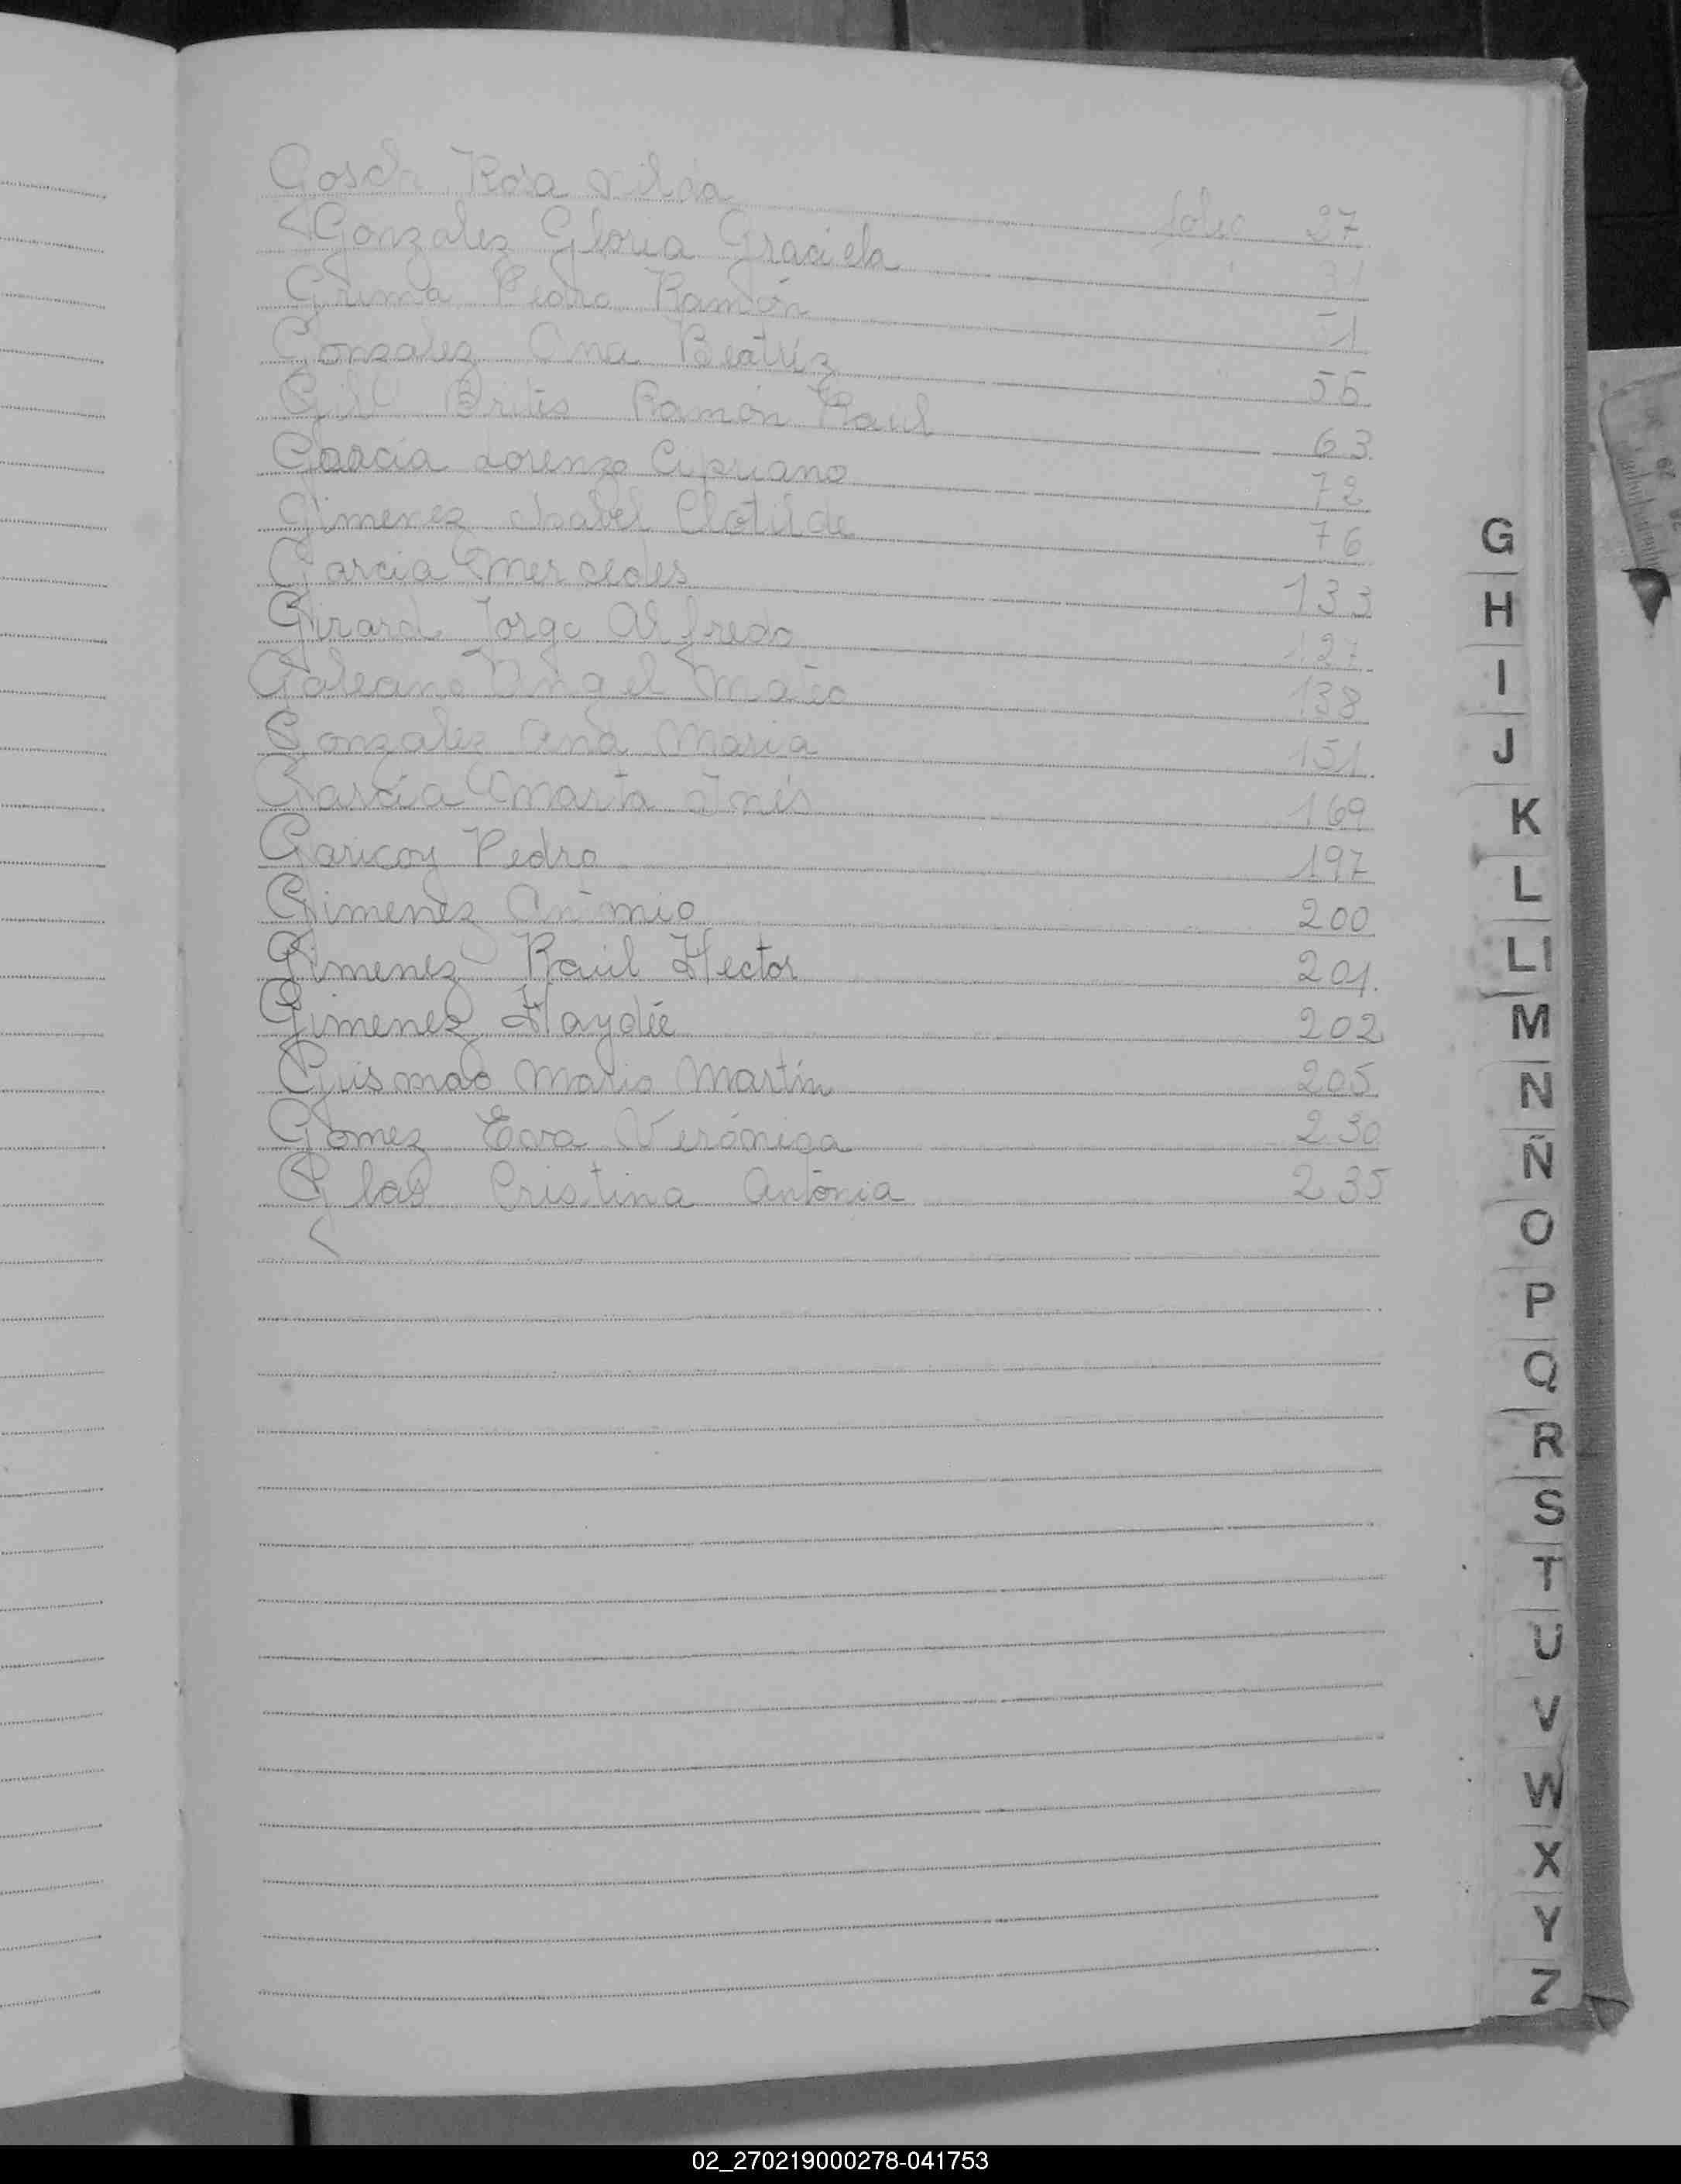 Gosch Rosa folio 27
Gonzalez Gloria Graciela 31
Grima Pedro Ramón 51
Gonzalez Ana Beatríz 55
Gill Brites Ramón Raul 63
Garcia Lorenzo Cipriano 72
Gimenez Isabel Clotilde 76
Garcia Mercedes 133
Girard Jorge Alfredo 127
Galeano Angel Mateo 138
Gonzalez Ana Maria 151
García Marta Inés 169
Garicoy Pedro 197
Gimenez Antonio 200
Gimenez Raúl Hector 201
Gimenez Haydée 202
Grismao Mario Martín 205
Gomez Eva Verónica 230
Glas Cristina Antonia 235
G
H
I
J
K
L
Ll
M
N
Ñ
O
P
Q
R
S
T
U
V
W
X
Y
Z
02_270219000278-041753